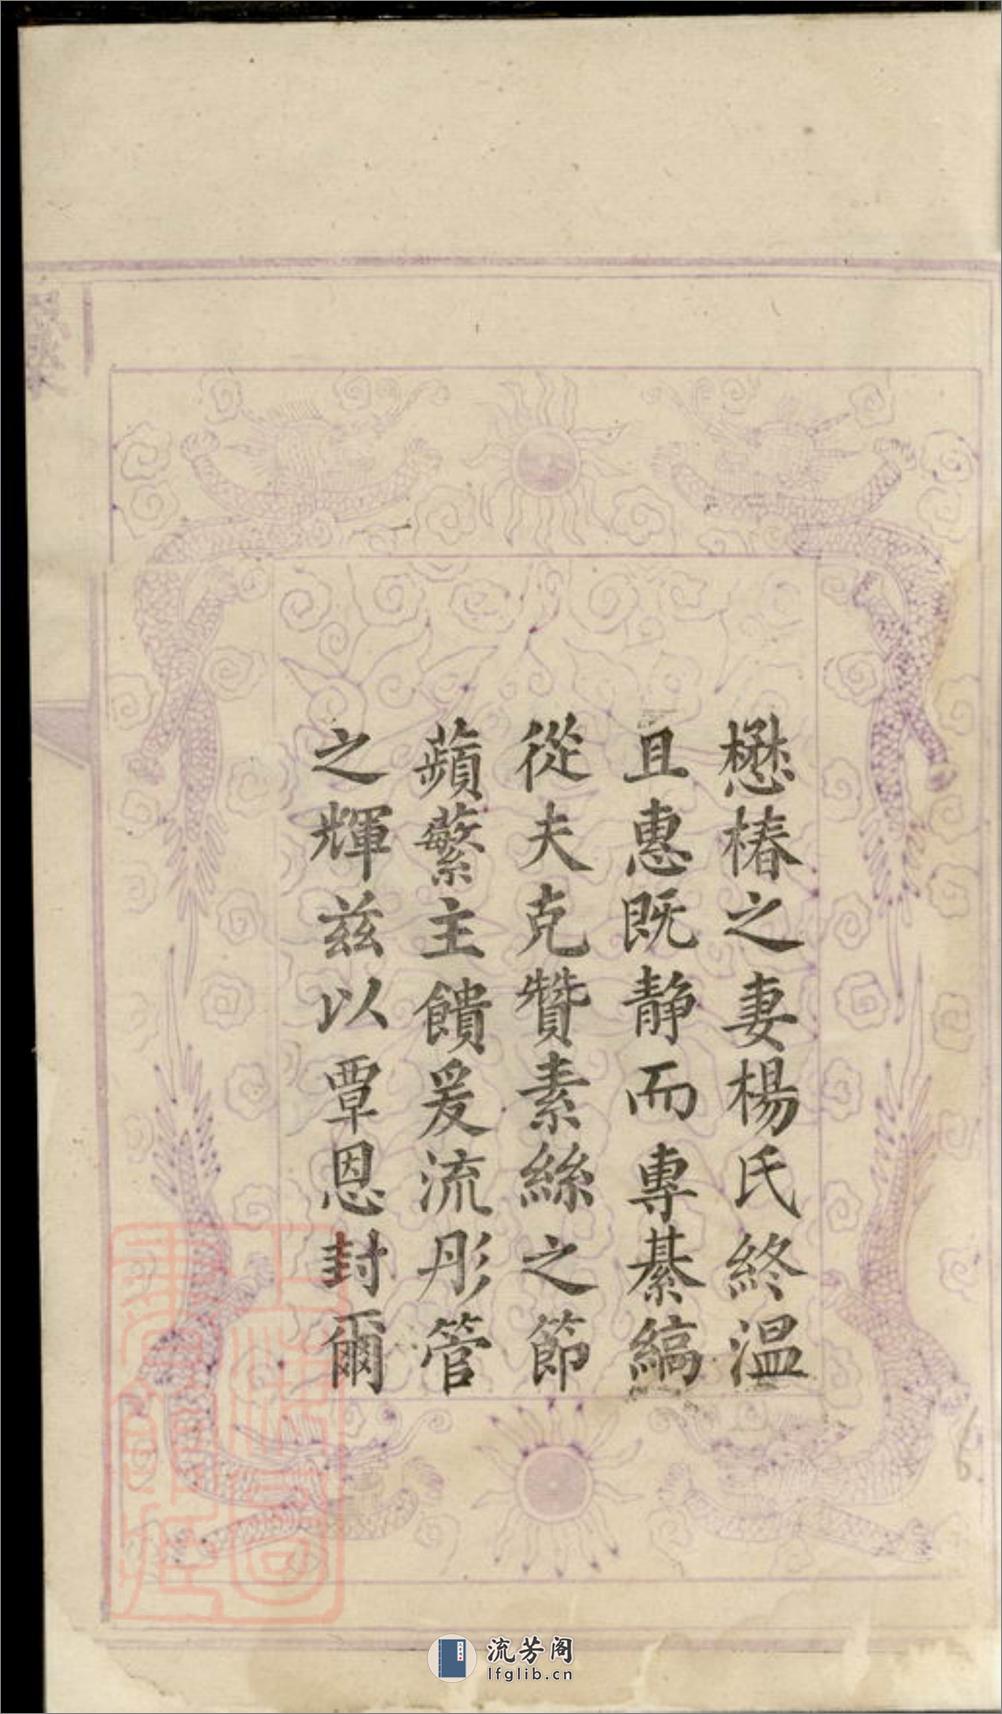 懋椿之妻楊氏終溫
且惠既静而專綦縞
從夫克贊素絲之節
蘋蘩主饋爰流彤管
之輝兹以覃恩封爾
流芳阁
lfglib.cn